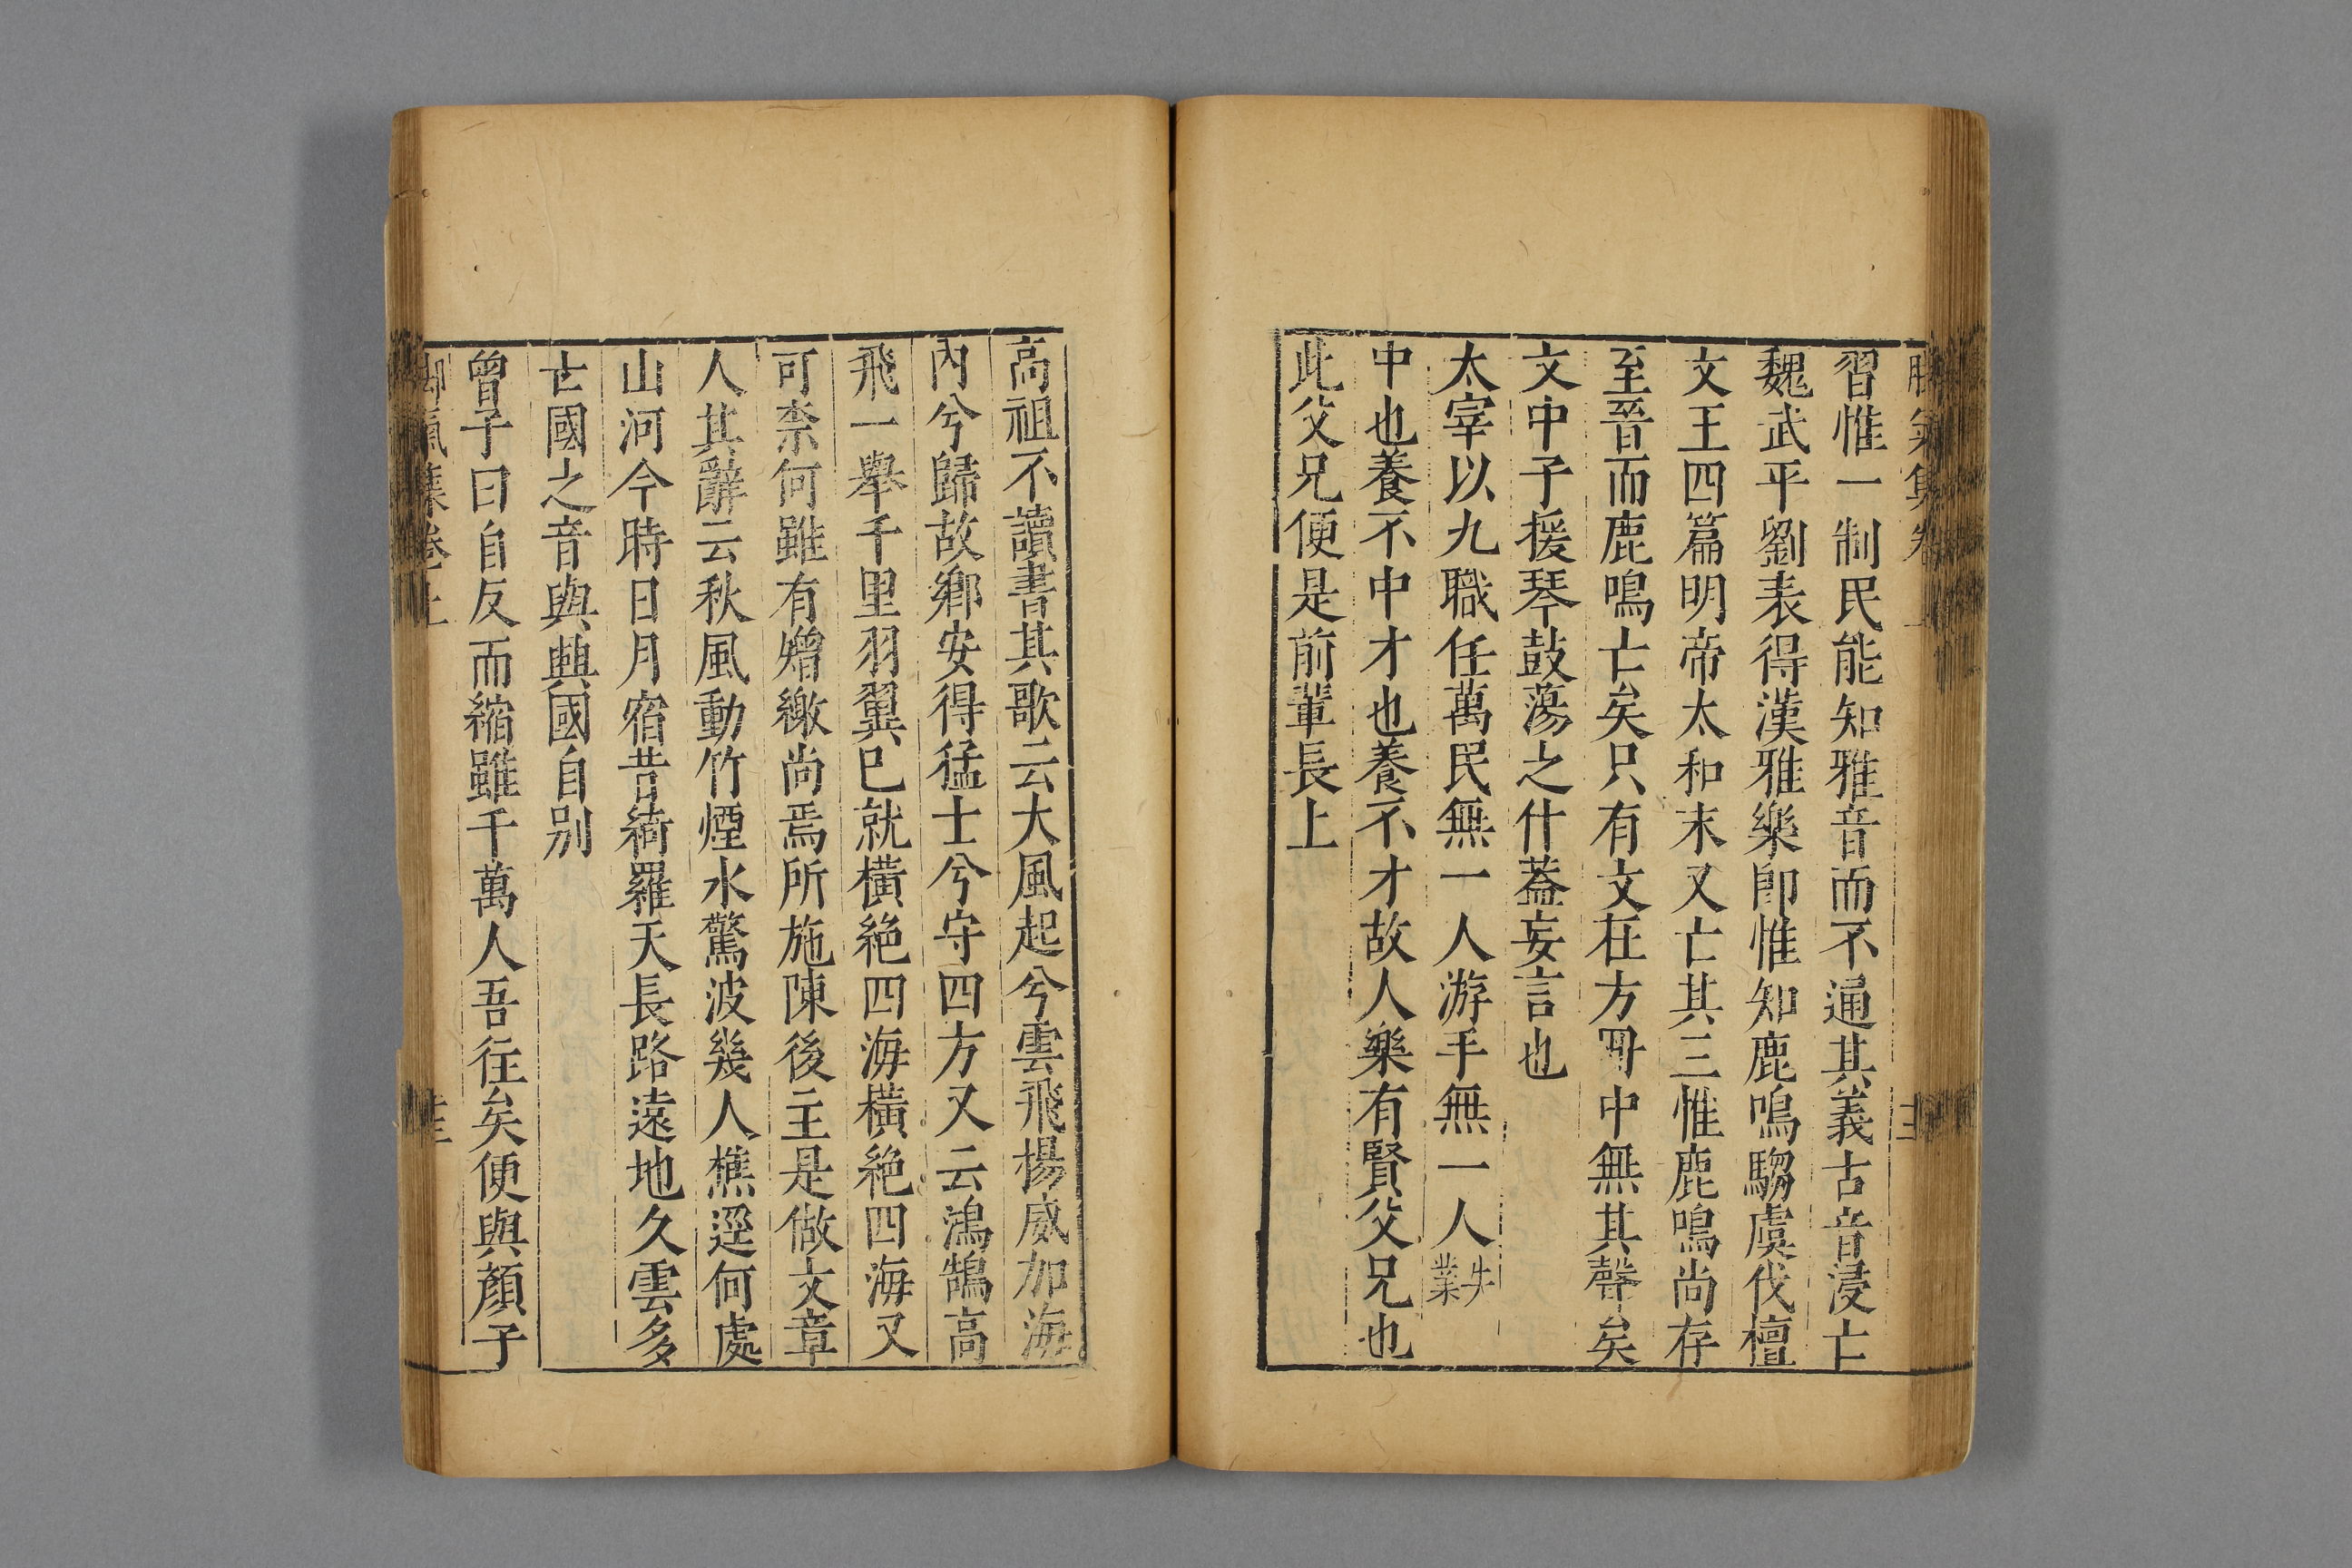 習惟一制民能知雅音而不通其義古音浸亡
魏武平劉表得漢雅樂卽惟知鹿鳴騶虞伐檀
文王四篇明帝太和末又亡其三惟鹿鳴尚存
至晉而鹿鳴亡矣只有文在方冊中無其聲矣
文中子援琴鼓蕩之什蓋妄言也
太宰以九職任萬民無一人游手無一人失業
中也養不中才也養不才故人樂有賢父兄也
此父兄便是前輩長上
高祖不讀書其歌云大風起兮雲飛揚威加海
內兮歸故鄉安得猛士兮守四方又云鴻鵠高
飛一舉千里羽翼已就橫絕四海橫絕四海又
可柰何雖有矰繳尚焉所施陳後主是做文章
人其辭云秋風動竹煙水驚波幾人樵逕何處
山河今時日月宿昔綺羅天長路遠地久雲多
亡國之音與興國自別
曾子曰自反而縮雖千萬人吾往矣便與顏子
腳氣集卷上